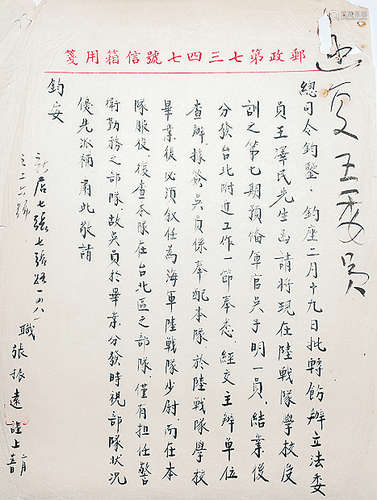 郵政第七三四七號信箱用箋
速覆王委員
總司令鈞鑒:鈞座二月十九日批轉飭辦立法委
員王澤民先生函請將現在陸戰隊學校受
訓之第七期預備軍官吳子明一員,結業後
分發台北附近工作一節奉悉.經交主辦單位
查辦據簽吳員係奉配本隊於陸戰隊學校
畢業後必須叙任為海軍陸戰隊少尉而任本
隊服役,復查本隊在台北區之部隊,僅有担任警
衛勤務之部隊故吳員於畢業分發時視部隊狀況
優先派補.肅此敬請
鈞安
職 張振遠 謹上 月
居七張七張路一四八
之二六號